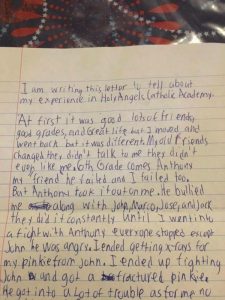 I am writing this letter to tell about
my experience in Holy Angels Catholic Academy.
At first it was good lots of friends,
good grades, and Great life but I moved and
went back but it was different. My old friends
changed they didn't talk to me they didn't
even like me. 6th Grade comes Anthony
my friend he failed and I failed too.
But Anthony took it out on me. He bullied
me along with John, Marco, Jose, and Jack
they did it constantly until I went into
a fight with Anthony everyone stopped except
John he was angry. I ended getting x-rays for
my pinkie from John. I ended up fighting
John and got a fractured pinkie.
He got into a lot of trouble as for me no